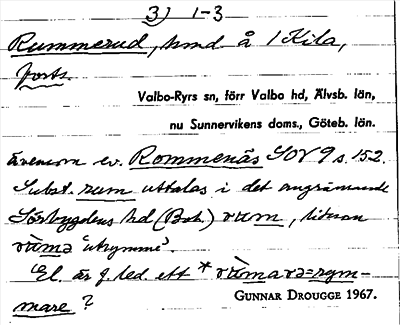 3) 1-3
Rummerud, hmd. å 1 Kila,
forts.
Valbo-Ryrs sn, förr Valbo hd, Älvsb. län,
nu Sunnervikens doms., Göteb. län.
ävensom ev. Rommenäs SOV 9 s. 152.
Subst. rum uttalas i det angränsande
Sörbygdens hd (Boh.) rum, liksom
"utrymme".
El. är f. led. ett
mare?
GUNNAR DROUGGE 1967.